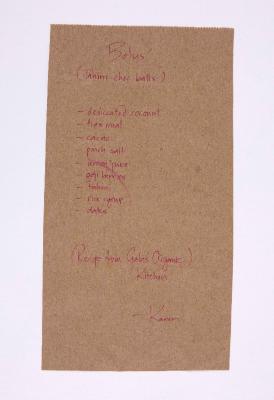 (Tahini choc balls)
- desiccated coconut
- cacao
- pinch salt
- lemon juice
- goji berries
- tahini
- rice syrup
- dates
(Recipe from Gabs Organic
Kitchen)
- Karen